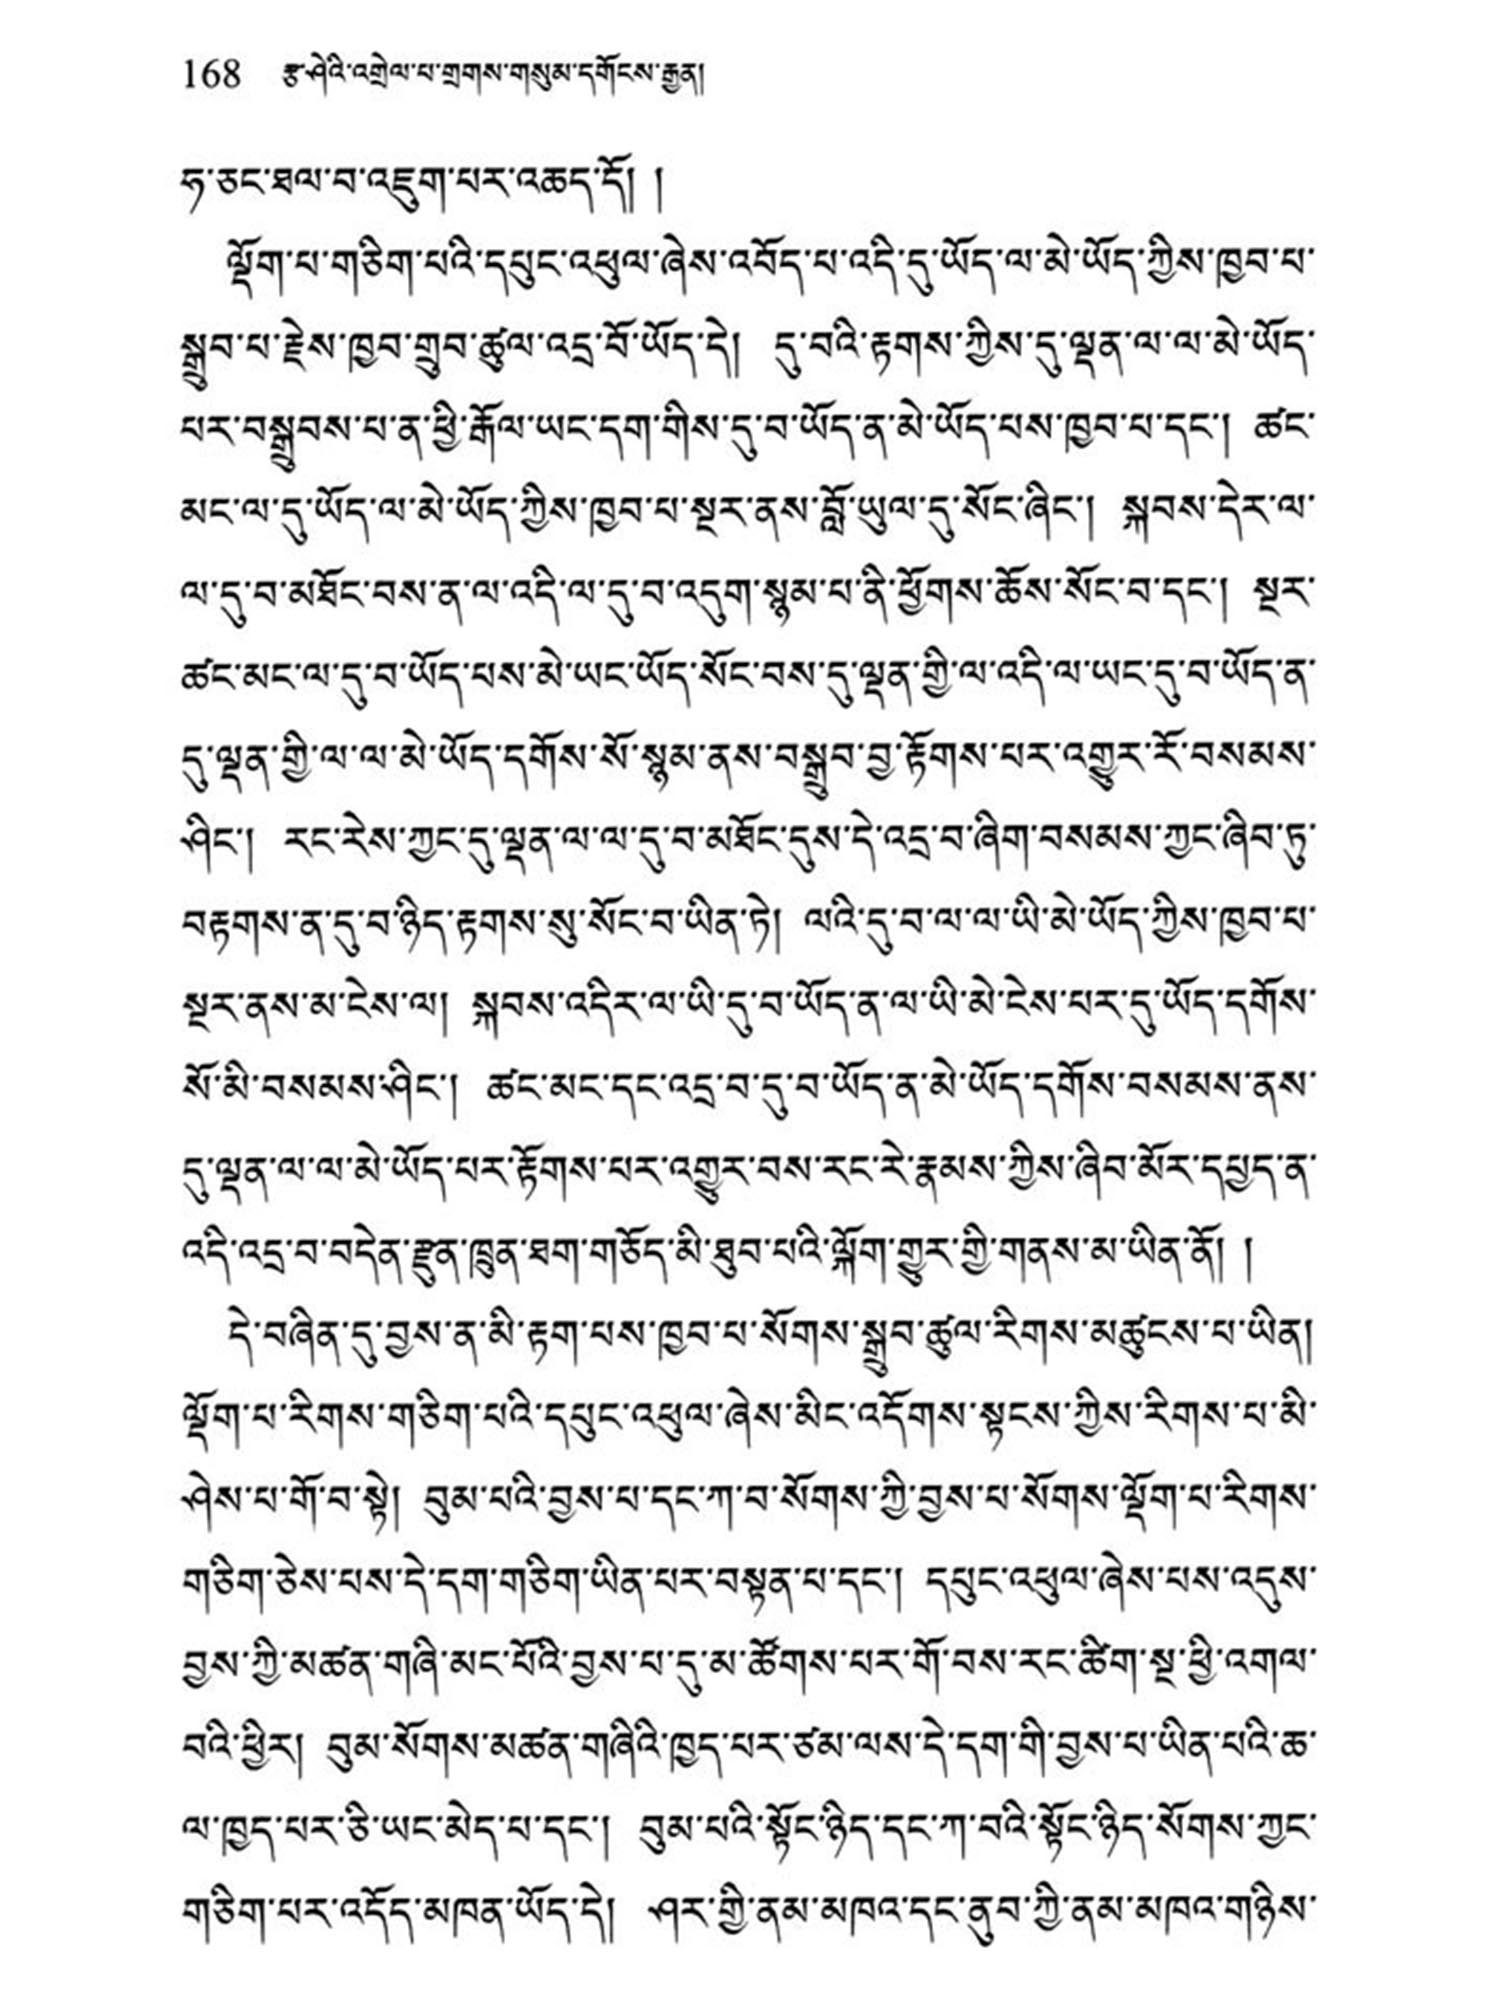 168 རྩ་ཤེའི་འགྲེལ་པ་གྲགས་གསུམ་དགོངས་རྒྱན།
ཧ་ཅང་ཐལ་བ་འཇུག་པར་འཆད་དོ། །
ལྡོག་པ་གཅིག་པའི་དཔུང་འཕུལ་ཞེས་འབོད་པ་འདི་དུ་ཡོད་ལ་མེ་ཡོད་ཀྱིས་ཁྱབ་པ་
སྒྲུབ་པ་རྗེས་ཁྱབ་གྲུབ་ཚུལ་འདྲ་བོ་ཡོད་དེ། དུ་བའི་རྟགས་ཀྱིས་དུ་ལྡན་ལ་ལ་མེ་ཡོད་
པར་བསྒྲུབས་པ་ན་ཕྱི་རྒོལ་ཡང་དག་གིས་དུ་བ་ཡོད་ན་མེ་ཡོད་པས་ཁྱབ་པ་དང་། ཚང་
མང་ལ་དུ་ཡོད་ལ་མེ་ཡོད་ཀྱིས་ཁྱབ་པ་སྔར་ནས་བློ་ཡུལ་དུ་སོང་ཞིང་། སྐབས་དེར་ལ་
ལ་དུ་བ་མཐོང་བས་ན་ལ་འདི་ལ་དུ་བ་འདུག་སྙམ་པ་ནི་ཕྱོགས་ཆོས་སོང་བ་དང་། སྔར་
ཚང་མང་ལ་དུ་བ་ཡོད་པས་མེ་ཡང་ཡོད་སོང་བས་དུ་ལྡན་གྱི་ལ་འདི་ལ་ཡང་དུ་བ་ཡོད་ན་
དུ་ལྡན་གྱི་ལ་ལ་མེ་ཡོད་དགོས་སོ་སྙམ་ནས་བསྒྲུབ་བྱ་རྟོགས་པར་འགྱུར་རོ་བསམས་
ཤིང་། རང་རེས་ཀྱང་དུ་ལྡན་ལ་ལ་དུ་བ་མཐོང་དུས་དེ་འདྲ་བ་ཞིག་བསམས་ཀྱང་ཞིབ་ཏུ་
བརྟགས་ན་དུ་བ་ཉིད་རྟགས་སུ་སོང་བ་ཡིན་ཏེ། ལའི་དུ་བ་ལ་ལ་ཡི་མེ་ཡོད་ཀྱིས་ཁྱབ་པ་
སྔར་ནས་མ་ངེས་ལ། སྐབས་འདིར་ལ་ཡི་དུ་བ་ཡོད་ན་ལ་ཡི་མེ་ངེས་པར་དུ་ཡོད་དགོས་
སོ་མི་བསམས་ཤིང་། ཚང་མང་དང་འདྲ་བ་དུ་བ་ཡོད་ན་མེ་ཡོད་དགོས་བསམས་ནས་
དུ་ལྡན་ལ་ལ་མེ་ཡོད་པར་རྟོགས་པར་འགྱུར་བས་རང་རེ་རྣམས་ཀྱིས་ཞིབ་མོར་དཔྱད་ན་
འདི་འདྲ་བ་བདེན་རྫུན་ཁྲུན་ཐག་གཅོད་མི་ཐུབ་པའི་ལྐོག་གྱུར་གྱི་གནས་མ་ཡིན་ནོ། །
དེ་བཞིན་དུ་བྱས་ན་མི་རྟག་པས་ཁྱབ་པ་སོགས་སྒྲུབ་ཚུལ་རིགས་མཚུངས་པ་ཡིན།
ལྡོག་པ་རིགས་གཅིག་པའི་དཔུང་འཕུལ་ཞེས་མིང་འདོགས་སྟངས་ཀྱིས་རིགས་པ་མི་
ཤེས་པ་གོ་བ་སྟེ། བུམ་པའི་བྱས་པ་དང་ཀ་བ་སོགས་ཀྱི་བྱས་པ་སོགས་ལྡོག་པ་རིགས་
གཅིག་ཅེས་པས་དེ་དག་གཅིག་ཡིན་པར་བསྟན་པ་དང་། དཔུང་འཕུལ་ཞེས་པས་འདུས་
བྱས་ཀྱི་མཚན་གཞི་མང་པོའི་བྱས་པ་དུ་མ་ཚོགས་པར་གོ་བས་རང་ཚིག་སྔ་ཕྱི་འགལ་
བའི་ཕྱིར། བུམ་སོགས་མཚན་གཞིའི་ཁྱད་པར་ཙམ་ལས་དེ་དག་གི་བྱས་པ་ཡིན་པའི་ཆ་
ལ་ཁྱད་པར་ཅི་ཡང་མེད་པ་དང་། བུམ་པའི་སྟོང་ཉིད་དང་ཀ་བའི་སྟོང་ཉིད་སོགས་ཀྱང་
གཅིག་པར་འདོད་མཁན་ཡོད་དེ། ཤར་གྱི་ནམ་མཁའ་དང་ནུབ་ཀྱི་ནམ་མཁའ་གཉིས་